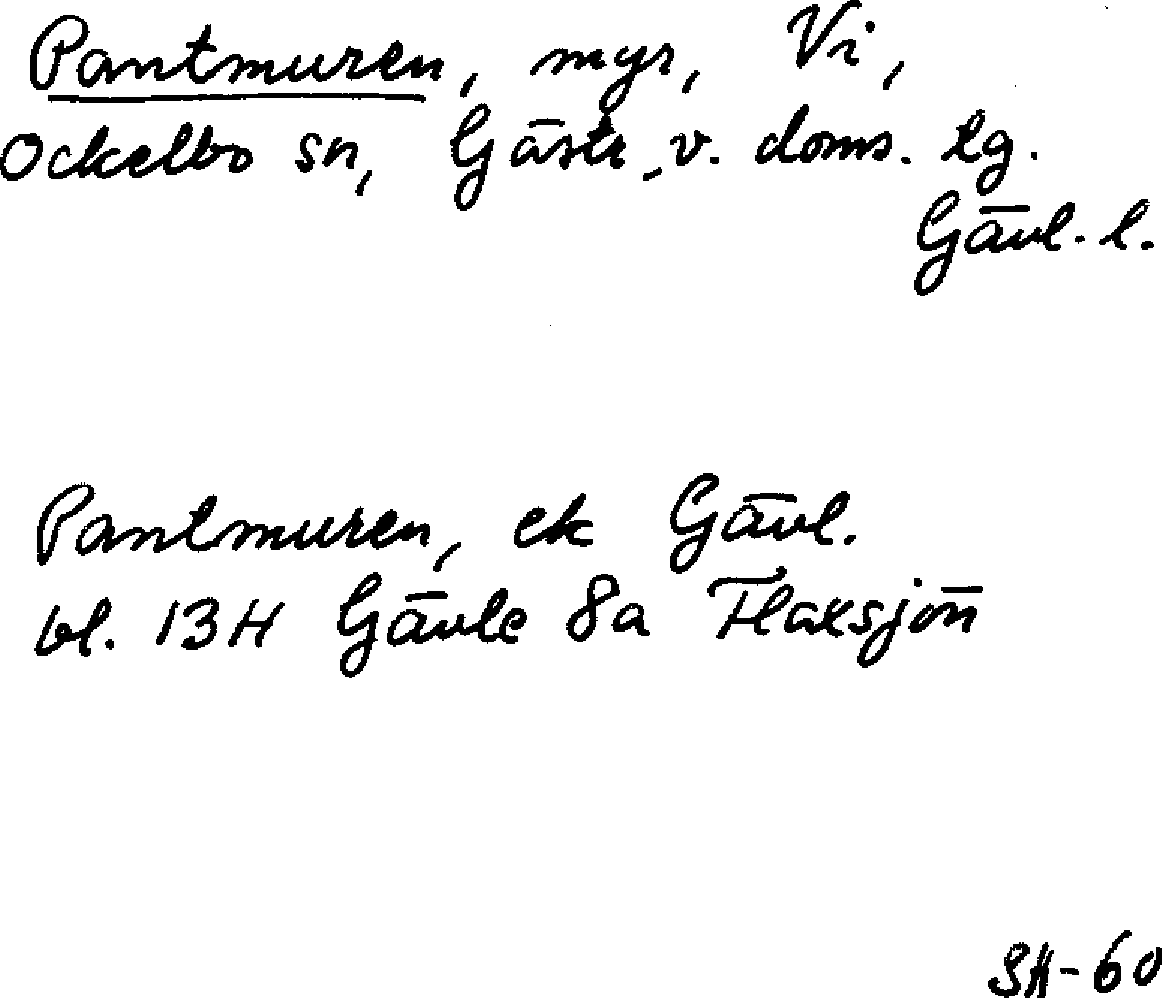 Pantmuren, myr, Vi,
Ockelbo sn, Gästr. v. doms. lg.
Gävl. l.
Pantmuren, ek Gävl.
bl. 13H Gävle 8a Flaxsjön
SH-60